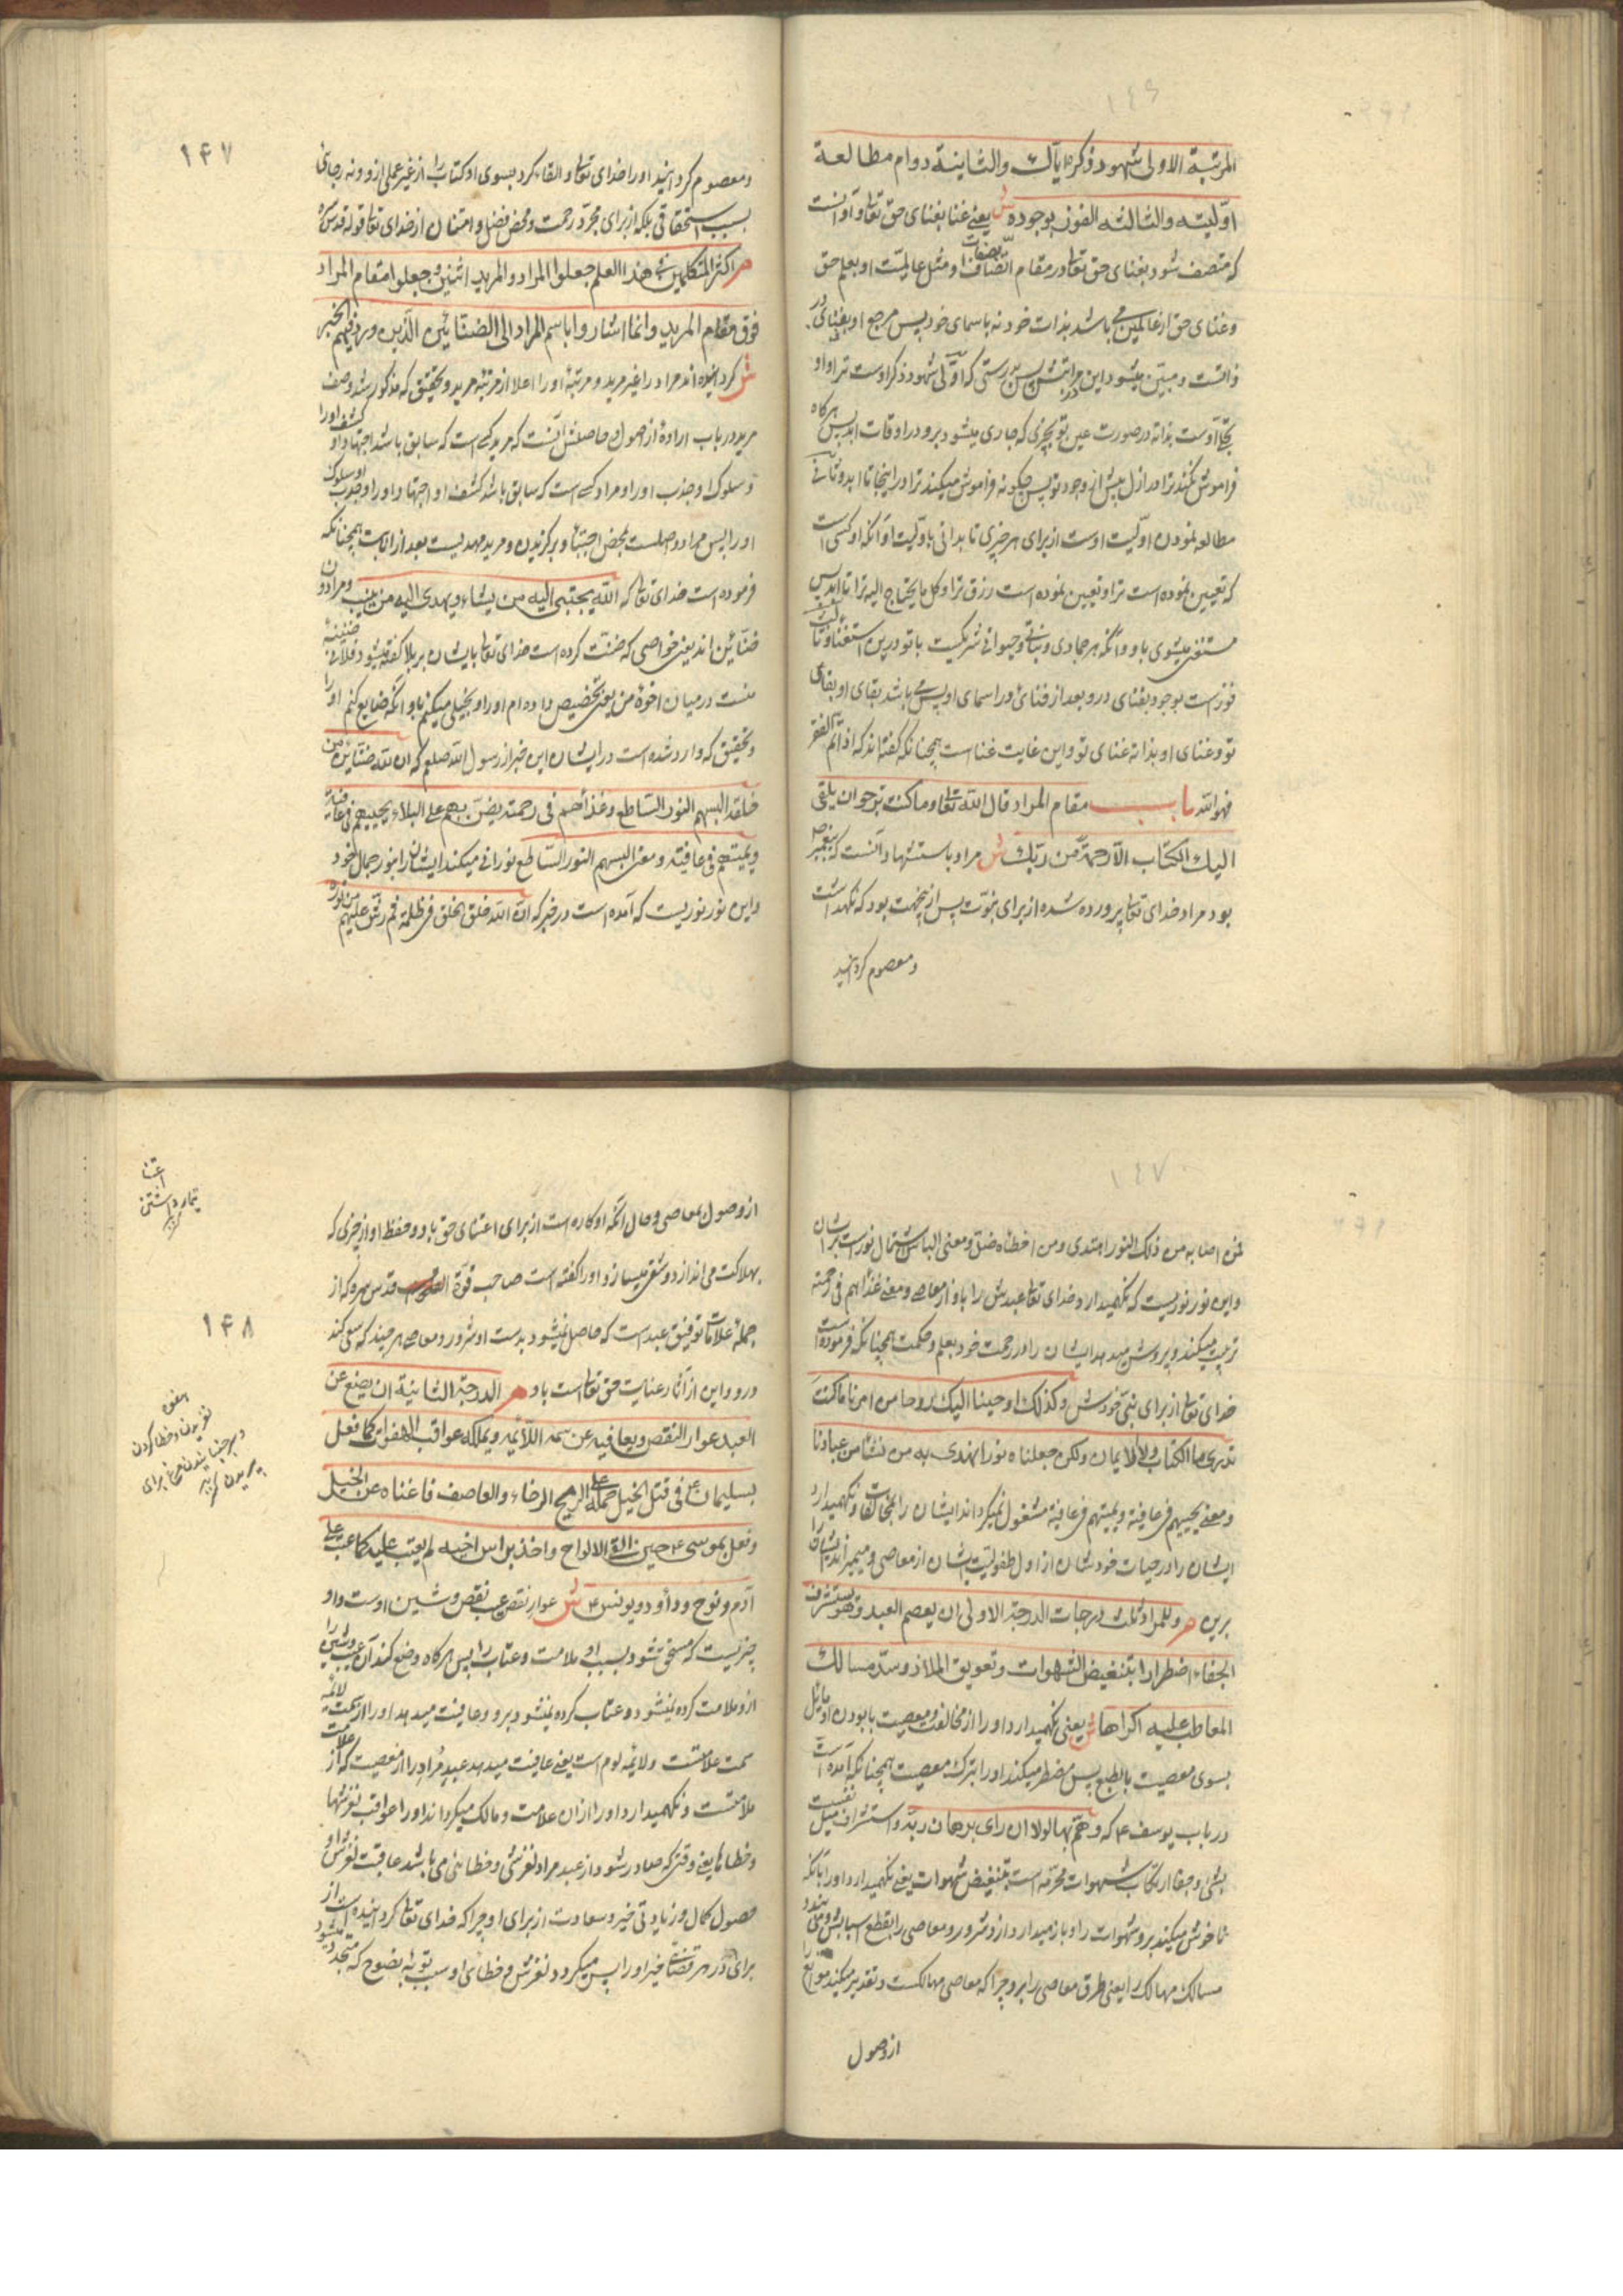 المرتبة الاولی شهود ذکره ایاک والثانیة دوام مطالعة
اولیته والثالثه الفوز بوجوده ش یعنی غنا بغنای حق تعا و آوانست
که متصف شود بغنای حق تعا در مقام اتصاف بصفات او مثل عالمیت او بعلم حق
وغنای حق از عالمین می باشد بذات خود نه باسمای خود پس مرجع او بغنای
ذاتست ومبین میشود این مراتبش پس بدرستی که اولی شهود ذکر اوست ترا واو
تجلی اوست بذاته در صورت عین تو بچیزی که جاری میشود برو در اوقات ابد پس هرگاه
فراموش نکند ترا در ازل پیش از وجود تو پس چگونه فراموش میکند ترا در اینجا تا ابد وثانی
مطالعه نمودن اولیت اوست از برای هر چیزی تا بدانی باولیت او آنکه او کسی است
که تعیین نموده است ترا وتعیین نموده است رزق ترا وکل ما یحتاج الیه ترا تا ابد پس
مستغنی میشوی باو وآنکه هر جمادی ونباتی وحیوانی شریکست با تو درین استغنا وثالث
فوزست بوجود بفنای درو بعد از فنای در اسمای او پس می باشد بقای او بقای
تو وغنای او بذاته غنای تو واین غایت غناست همچنانکه گفته اند که اذا تم الفقر
فهو الله باب مقام المراد قال الله تعا وما کنت ترجوا ان یلقی
الیک الکتاب الا رحمة من ربک ش مراد باستشهاد آنست که پیغمبر
بود مراد خدای تعا پرورده شده از برای نبوت پس ازینجهت بود که نگهداشت
ومعصوم گردانید
۱۴۷
ومعصوم گردانید او را خدای تعا والقاء کرد بسوی او کتاب را از غیر عملی ازو ونه رجائی
بسبب استحقاقی بلکه از برای مجرد رحمت ومحض فضل وامتنان از خدای تعا قوله قدس سره
م اکثر المتکلمین فی هذا العلم جعلوا المراد والمرید اثنین وجعلوا مقام المراد
فوق مقام المرید وانما اشاروا باسم المراد الی الضنائن الذین ورد فیهم الخبر
ش گردانیده اند مراد را غیر مرید ومرتبهٔ او را اعلا از مرتبهٔ مرید وتحقیق که مذکور شد وصف
مرید در باب ارادة از اصول وحاصلش آنست که مرید کسی است که سابق باشد اجتهاد او کشف او را
وسلوک او جذب او را ومراد کسی است که سابق باشد کشف او اجتهاد او را وجذب او سلوک
او را پس مراد واصلست بمحض اجتبا وبرگزیدن ومرید مهدیست بعد از انابت همچنانکه
فرموده است خدای تعا که الله یجتبی الیه من یشاء ویهدی الیه من ینیب ومرادون
ضنائن اند یعنی خواصی که ضنت کرده است خدای تعا بایشان بر بلا گفته میشود فلانی ضنینهٔ
منست در میان اخوهٔ من یعنی تخصیص داده ام او را وبخیلی میکنم باو آنکه ضایع کنم او را
وتحقیق که وارد شده است در ایشان این خبر از رسول الله صلعم که ان لله ضنائن من
خلقه البسهم النور الساطع وغذاهم فی رحمته یضن بهم علی البلاء یحییهم فی عافیة
ویمیتهم فی عافیته ومعنی البسهم النور الساطع نورانی میکند ایشان را بنور جمال خود
واین نور نوریست که آمده است در خبر که ان الله خلق الخلق فی ظلمة ثم رش علیهم من نوره
فمن اصابه من ذلک النور اهتدی ومن اخطأه ضل ومعنی الباس اشتمال نورست بریشان
واین نور نوریست که نگهمیدارد خدای تعا عبدش را باو از معاصی ومعنی غذاهم فی رحمته
تربیت میکند وپرورش میدهد ایشان را در رحمت خود بعلم وحکمت همچنانکه فرموده است
خدای تعا از برای نبی خودش وکذلک اوحینا الیک روحا من امرنا ما کنت
تدری ما الکتاب ولا الایمان ولکن جعلناه نورا نهدی به من نشا من عبادنا
ومعنی یحییهم فی عافیة ویمیتهم فی عافیة مشغول نمیگرداند ایشان را بمخالفات ونگهمیدارد
ایشان را در حیات خودشان از اول طفولیت ایشان از معاصی ومیمیراند ایشان را
برین م وللمراد ثلث درجات الدرجة الاولی ان یعصم العبد وهو یستشرف
الجفاء اضطرارا بتنغیض الشهوات وتعویق الملاذ وسد مسالک
المعاطب علیه اکراها ش یعنی نگهمیدارد او را از مخالفت ومعصیت با بودن او مایل
بسوی معصیت بالطبع پس مضطر میکند او را بترک معصیت همچنانکه آمده است
در باب یوسف ع که وهم بها لولا ان رای برهان ربه واستشراف میل نفسست
بشی وجفا ارتکاب شهوات محرمه است وتنغیض شهوات یعنی نگهمیدارد او را بآنکه
ناخوش میکند برو شهوات را وباز میدارد ازو شرور ومعاصی را بقطع اسبابش ومی بندد
مسالک مهالک را یعنی طرق معاصی را برو چرا که معاصی مهالکست وتقدیر میکند موانع را
از وصول
اعتنا
تیمار داشتن
۱۴۸
هفوه
لغزیدن وخطا کردن
از وصول بمعاصی وحال آنکه او کاره است از برای اعتنای حق باو وحفظ او از چیزی که
بهلاکت می اندازد وشقی میسازد او را گفته است صاحب قوة القلوب قدس سره که از
جملهٔ علامات توفیق عبد است که حاصل نمیشود بدست او شرور ومعاصی هر چند که سعی کند
درو واین از آثار عنایت حق تعا است باو م الدرجة الثانیة ان یضع عن
العبد عوار النقص ویعافیه عن سمة اللائمه ویملکه عواقب الهفوات کما فعل
بسلیمان ع فی قتل الخیل حمله علی الریح الرخاء والعاصف فاغناه عن الخیل
وفعل بموسی ع حین القی الالواح واخذ براس اخیه لم یعتب علیه کما عتب علی
آدم ونوح وداود ویونس ع ش عوار نقص عیب نقص وشین اوست واو
چیزیست که مستحق شود بسبب او ملامت وعتاب را پس هرگاه وضع کند آن عیب وشین را
ازو ملامت کرده نمیشود وعتاب کرده نمیشود برو وعافیت میدهد او را از سمت لائمه
سمت علامتست ولائمه لوم است یعنی عافیت میدهد عبد مراد را از معصیت که آن علامت
ملامتست ونگهمیدارد او را از ان علامت ومالک میگرداند او را عواقب لغزشها
وخطاها یعنی وقتی که صادر شود از عبد مراد لغزشی وخطائی می باشد عاقبت لغزش او
حصول کمال وزیادتی خیر وسعادت از برای او چرا که خدای تعا گردانیده است از
برای او در هر قضائی خیر او را پس میگردد لغزش وخطای او سبب توبهٔ نصوح که متجدد میشود